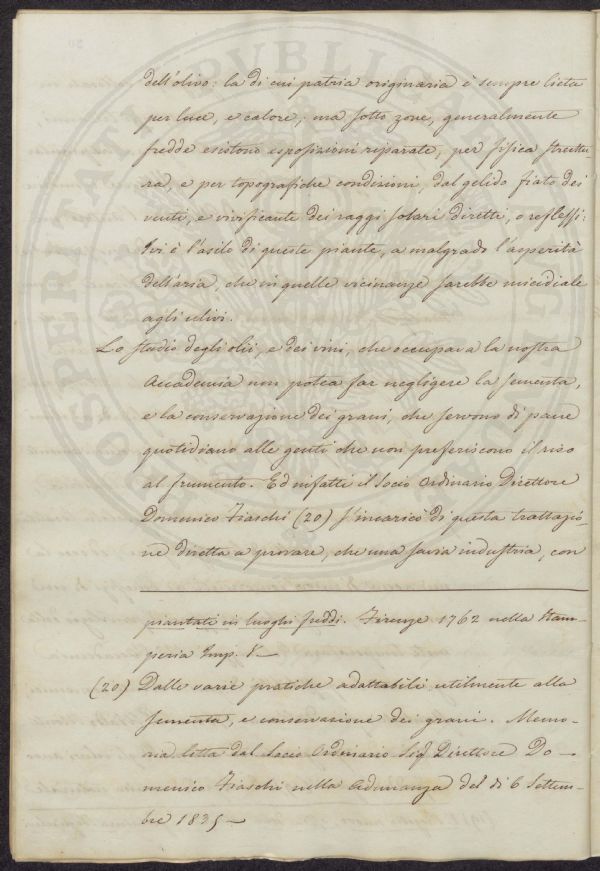 dell'olivo: la di cui patria originaria è sempre lieta
per luce, e calore; ma sotto zone, generalmente
fredde esistono esposizioni riparate, per fisica struttu
ra, e per topografiche condizioni, dal gelido fiato dei
venti, e vivificante dei raggi solari diretti, o reflessi:
Ivi è l'asilo di queste piante, a malgrado l'asperità
dell'aria, che in quelle vicinanze sarebbe micidiale
agli ulivi.
Lo studio degli olii, e dei vini, che occupava la nostra
Accademia non potea far negligere la sementa,
e la conservazione dei grani, che servono di pane
quotidiano alle genti che non preferiscono il riso
al frumento. Ed infatti il Socio Ordinario Direttore
Domenico Fiaschi (20) s'incaricò di questa trattazio
ne diretta a provare, che una savia industria, con
piantati in luoghi freddi. Firenze 1762 nella Stam-
peria Imp. &—
(20) Delle varie pratiche adattabili utilmente alla
sementa, e conservazione dei grani. Memo-
ria letta dal Socio Ordinario Sig Direttore Do—
menico Fiaschi nella Adunanza del dì 6 Settem-
bre 1835—